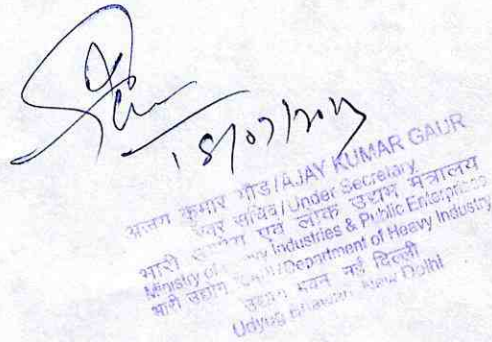 18/07/2017
अजय कुमार गौड/AJAY KUMAR GAUR
अवर सचिव/Under Secretary
भारी उद्योग एवं लोक उद्यम मंत्रालय
Ministry of Heavy Industries & Public Enterprises
भारी उद्योग विभाग/Department of Heavy Industry
उद्योग भवन नई दिल्ली
Udyog Bhawan, New Delhi